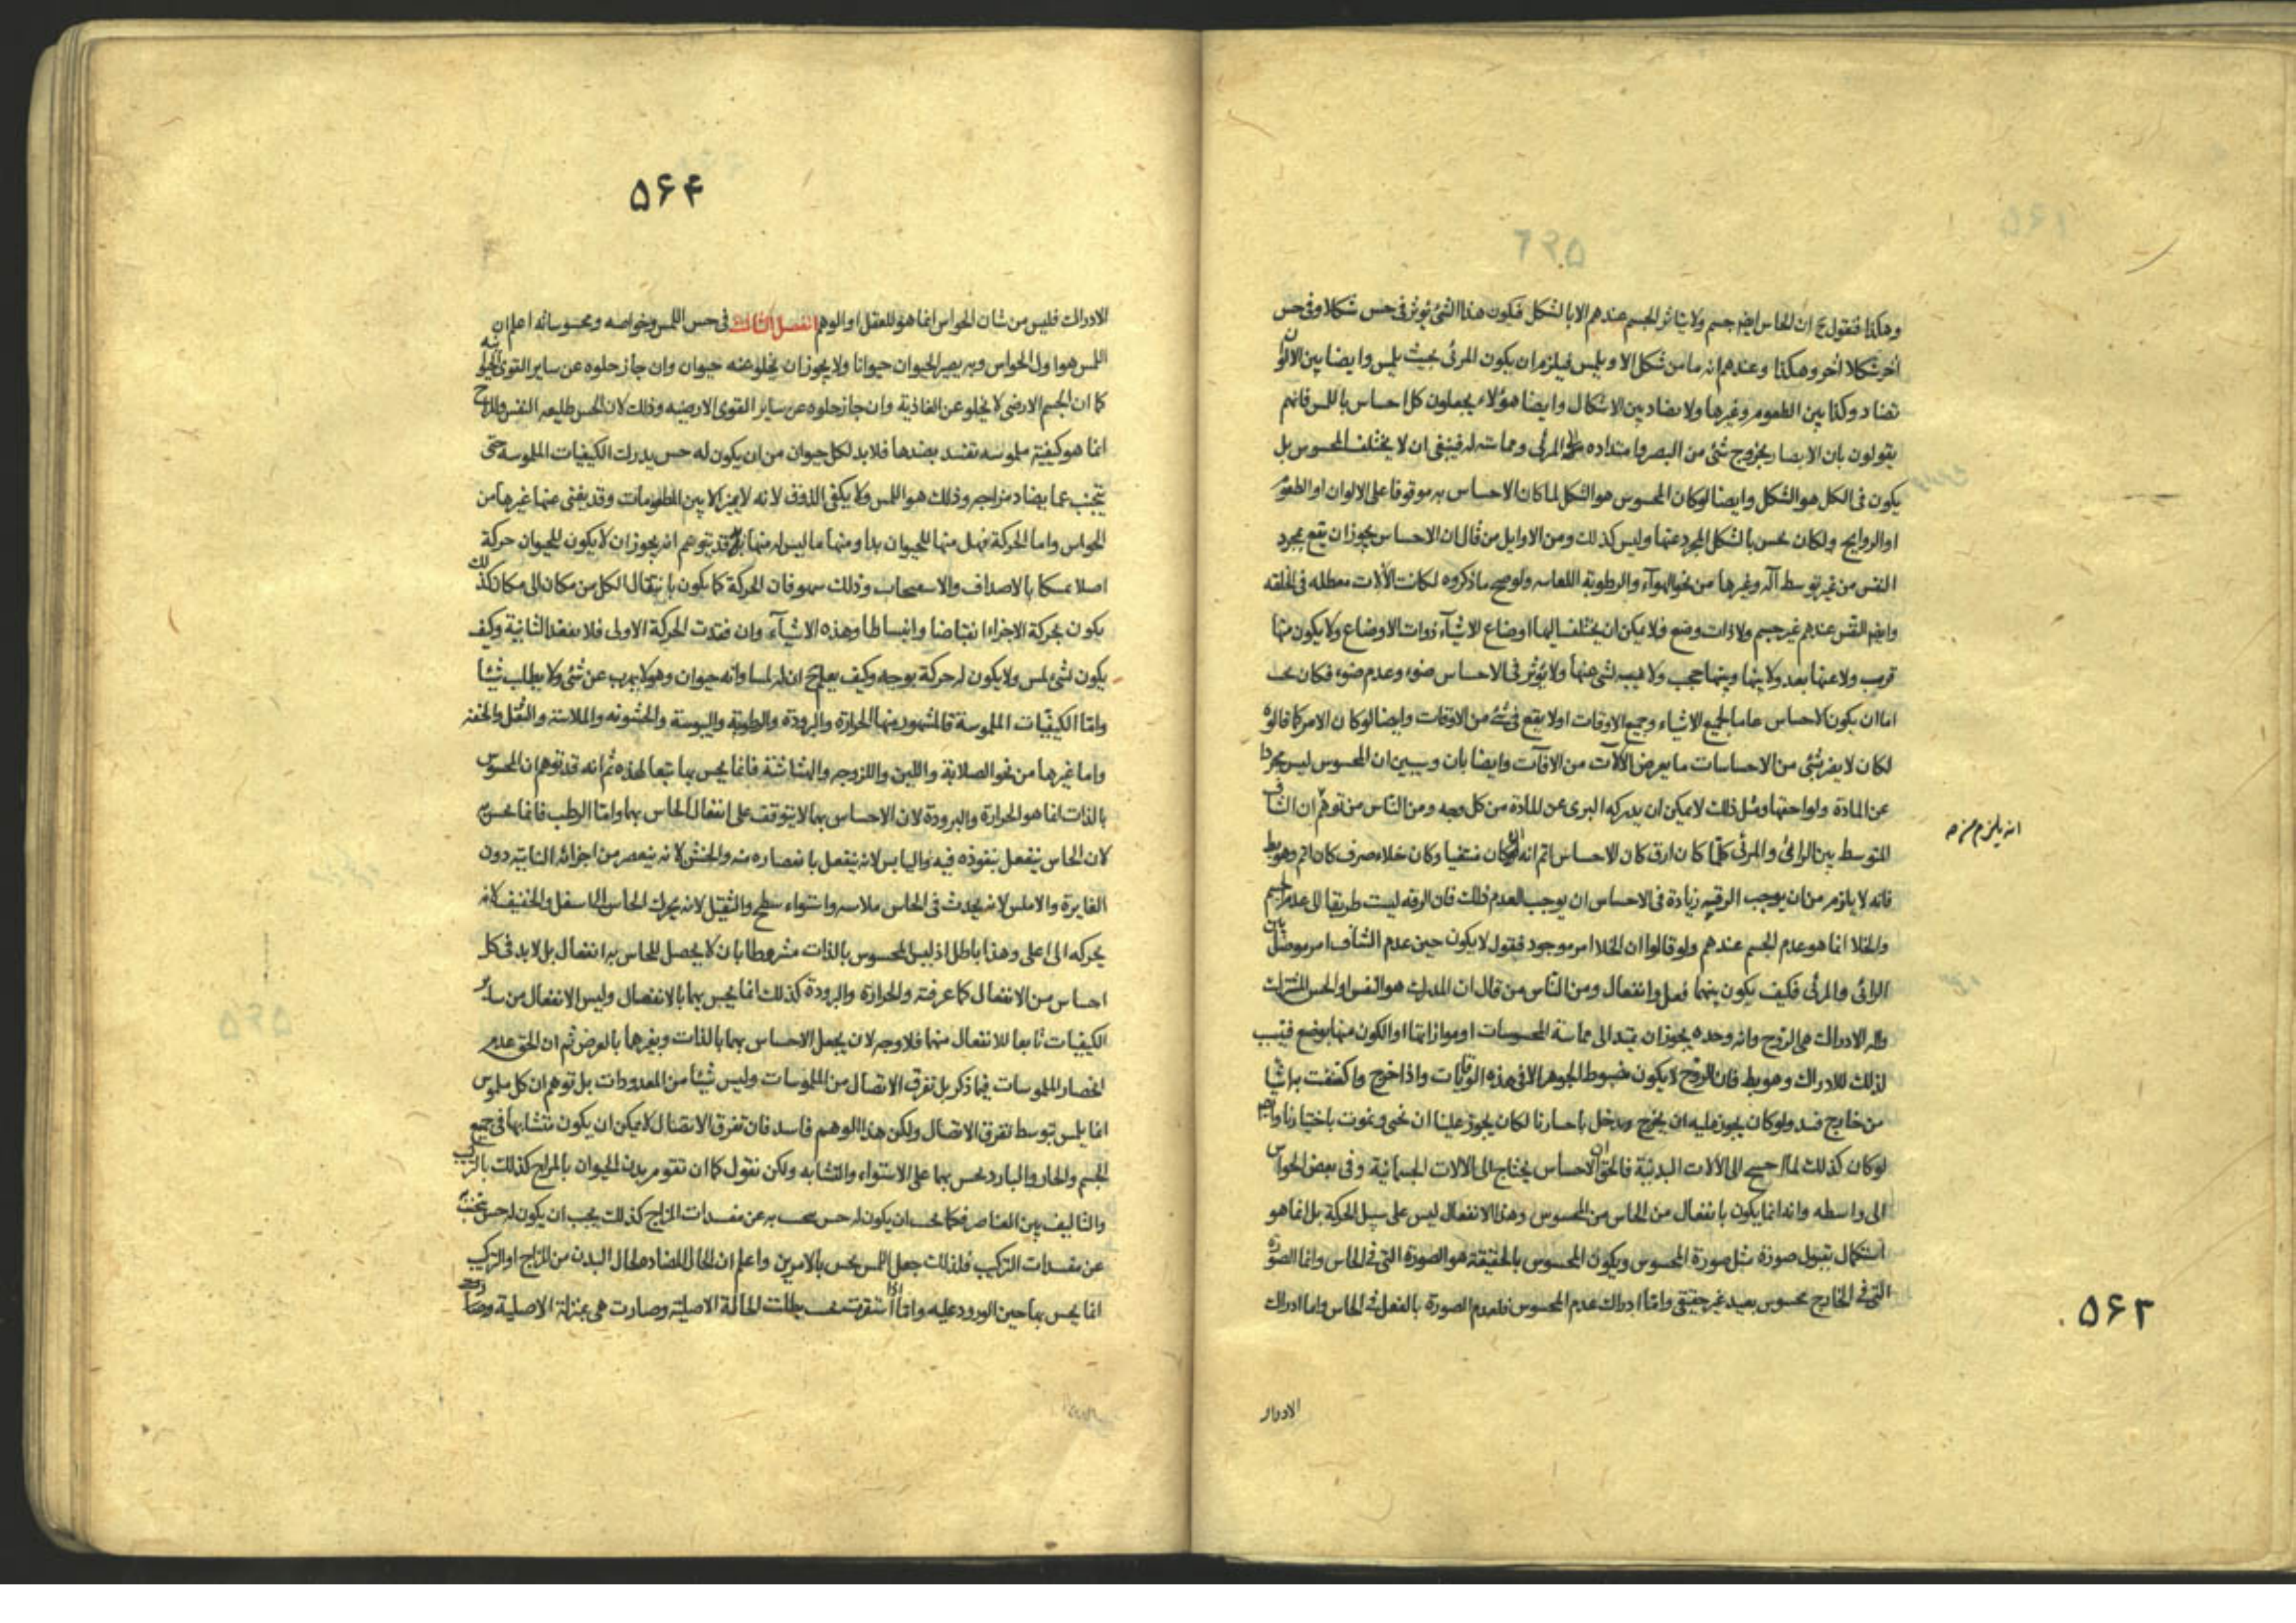 وهكذا فنقول ح ان الحاس ايضا جسم ولا يتاثر الجسم عندهم الا بالشكل فيكون هذا الشئ يؤثر فى حس شكلا وفى حس
اخر شكلا اخر وهكذا وعندهم انه ما من شكل الا ويلمس فيلزم ان يكون المرئى بحيث يلمس وايضا بين الالوان
تضاد وكذا بين الطعوم وغيرها ولا تضاد بين الاشكال وايضا هؤلاء يجعلون كل احساس باللمس فانهم
يقولون بان الابصار بخروج شئ من البصر وامتداده الى المرئى ومماسته له فينبغى ان لا يختلف المحسوس بل
يكون فى الكل هو الشكل وايضا لو كان المحسوس هو الشكل لما كان الاحساس به موقوفا على الالوان او الطعوم
او الروايح ولكان يحس بالشكل المجرد عنها وليس كذلك ومن الاوايل من قال ان الاحساس يجوز ان يقع بمجرد
النفس من غير توسط آلة وغيرها من نحو الهوآء والرطوبة اللعابيه ولو صح ما ذكروه لكانت الآلات معطله فى الخلقه
وايضا النفس عندهم غير جسم ولا ذات وضع فلا يمكن ان يختلف اليها اوضاع الاشيآء ذوات الاوضاع ولا يكون منها
قريب ولا عنها بعد ولا بينها وبينها حجب ولا غيبه لشئ عنها ولا يؤثر فى الاحساس ضوء وعدم ضوء فكان يجب
اما ان يكون الاحساس عاما لجميع الاشياء وجميع الاوقات او لا يقع فى شئ من الاوقات وايضا لو كان الامر كما قالوه
لكان لا يضر بشئ من الاحساسات ما يعرض الآلات من الافآت وايضا بان وسيبين ان المحسوس ليس مجردا
عن المادة ولواحقها ومثل ذلك لا يمكن ان يدركه البرى عن المادة من كل وجه ومن الناس من توهم ان الشاف
المتوسط بين الرائى والمرئى كلما كان ارق كان الاحساس اتم انه ان كان منتفيا وكان خلاء صرف كان اتم وهو بط
انه يلزم من صه
فانه لا يلزم من ان يوجب الرقيه زيادة فى الاحساس ان يوجب العدم ذلك فان الرقه ليست طريقا الى عدم الجسم
والخلا انما هو عدم الجسم عندهم ولو قالوا ان الخلا امر موجود فنقول لا يكون حين عدم الشاف امر موصل بين
الرائى والمرئى فكيف يكون بينهما فعل وانفعال ومن الناس من قال ان المدرك هو النفس او الحس المشترك
وآلة الادراك هى الروح وانه وحده يجوز ان يمتد الى مماسة المحسوسات او موازاتها او الكون منها بوضع فيجب
لذلك للادراك وهو بط فان الروح لا يكون مضبوط الجوهر الا فى هذه الوقايات واذا خرج واكتنفت به اشيا
من خارج فسد ولو كان يجوز عليه ان يخرج ويدخل باختيارنا لكان يجوز علينا ان نحيى ونموت باختيارنا وايضا
لو كان كذلك لما احتيج الى الآلات البدنية فالحق ان الاحساس يحتاج الى الالات الجسمانية وفى بعض الحواس
الى واسطه وانه انما يكون بانفعال من الحاس من المحسوس وهذا الانفعال ليس على سبيل الحركة بل انما هو
استكمال بقبول صورة مثل صورة المحسوس ويكون المحسوس بالحقيقة هو الصورة التى فى الحاس واما الصورة
التى فى الخارج فمحسوس بعيد غير حقيقى واما ادراك عدم المحسوس فلعدم الصورة بالفعل فى الحاس واما ادراك
۵۶۳
الادراك
۵۶۴
الادراك فليس من شان الحواس انما هو للعقل او الوهم الفصل الثالث فى حس اللمس وخواصه ومحسوساته اعلم ان
اللمس هو اول الحواس وبه يصير الحيوان حيوانا ولا يجوز ان يخلو عنه حيوان وان جاز خلوه عن ساير القوى الحيوانيه
كما ان الجسم الارضى لا يخلو عن الغاذية وان جاز خلوه عن ساير القوى الارضيه وذلك لان الحس طليعه النفس والمزاج
انما هو كيفية ملموسه تفسد بضدها فلا بد لكل حيوان من ان يكون له حس يدرك الكيفيات الملموسه حتى
يتجنب عما يضاد مزاجه وذلك هو اللمس ولا يكفى الذوق لانه لا يميز الا بين المطعومات وقد يغنى عنها غيرها من
الحواس واما الحركة فهل منها للحيوان بدا ومنها ما ليس له منها بد قد يتوهم انه يجوز ان لا يكون للحيوان حركة
اصلا تمسكا بالاصداف والاسفنجات وذلك سهو فان الحركة كما يكون بانتقال الكل من مكان الى مكان كذلك
يكون بحركة الاجزاء انقباضا وانبساطا وهذه الاشيآء وان فقدت الحركة الاولى فلا تفقد الثانية وكيف
يكون لشئ لمس ولا يكون له حركة بوجه وكيف يعلم ح ان له لمسا وانه حيوان وهو لا يهرب عن شئ ولا يطلب شيئا
واما الكيفيات الملموسة فالمشهور منها الحرارة والبرودة والرطوبة واليبوسة والخشونه والملاسة والثقل والخفه
واما غيرها من نحو الصلابة واللين واللزوجه والهشاشة فانما يحس بها تبعا لهذه ثم انه قد توهم ان المحسوس
بالذات انما هو الحرارة والبرودة لان الاحساس بهما لا يتوقف على انفعال الحاس بهما واما الرطب فانما يحس به
لان الحاس ينفعل بنفوذه فيه واليابس لانه ينفعل بانعصاره منه والخشن لانه ينعصر من اجزائه الناتيه دون
الغايرة والاملس لانه يحدث فى الحاس ملاسه واستواء سطح والثقيل لانه يحرك الحاس الى اسفل والخفيف لانه
يحركه الى اعلى وهذا باطل اذ ليس المحسوس بالذات مشروطا بان لا يحصل للحاس به انفعال بل لا بد فى كل
احساس من الانفعال كما عرفته والحرارة والبرودة كذلك انما يحس بهما بالانفعال وليس الانفعال من ساير
الكيفيات تابعا للانفعال منهما فلا وجه لان يجعل الاحساس بهما بالذات وبغيرهما بالعرض ثم ان الحق عدم
انحصار الملموسات فيما ذكر بل تفرق الاتصال من الملموسات وليس شيئا من المعدودات بل توهم ان كل ملموس
انما يلمس بتوسط تفرق الاتصال ولكن هذا الوهم فاسد فان تفرق الاتصال لا يمكن ان يكون متشابها فى جميع
الجسم والحار والبارد يحس بهما على الاستواء والتشابه ولكن نقول كما ان تقوم بدن الحيوان بالمزاج كذلك بالتركيب
والتاليف بين العناصر فكما يجب ان يكون له حس يجب به عن مفسدات المزاج كذلك يجب ان يكون له حس يجتنب
عن مفسدات التركيب فلذلك جعل اللمس يحس بالامرين واعلم ان الحال المضاد لحال البدن من المزاج او التركيب
انما يحس بها حين الورود عليه واما اذا استقرت بحيث بطلت الحالة الاصلية وصارت هى بمنزلة الاصلية